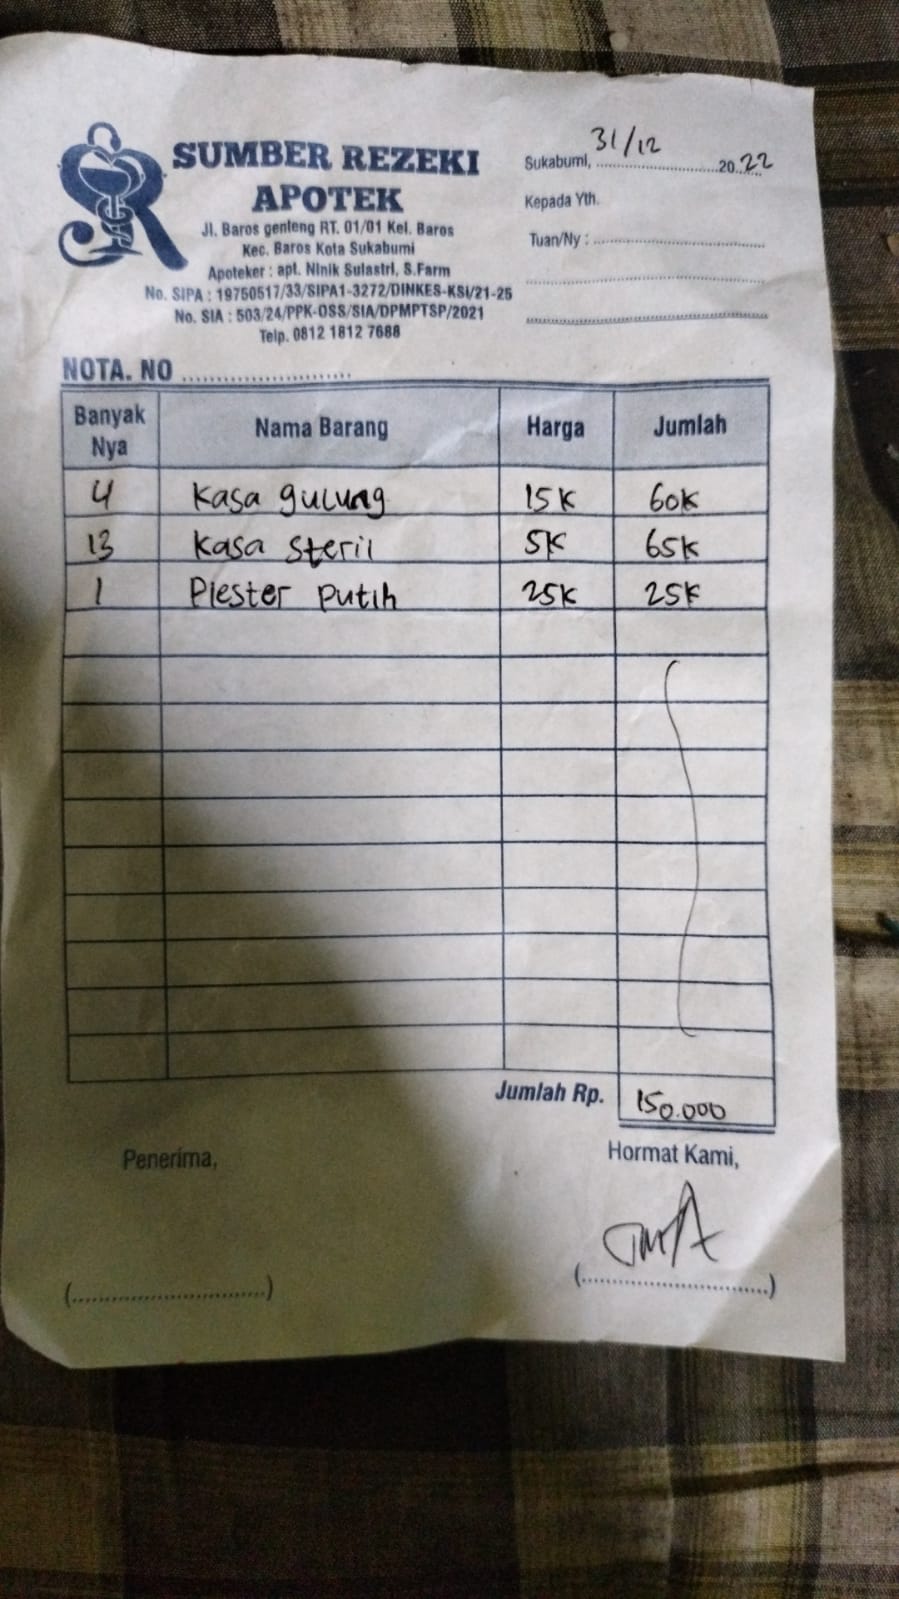 SUMBER REZEKI
APOTEK
Jl. Baros genteng RT. 01/01 Kel. Baros
Kec. Baros Kota Sukabumi
Apoteker : apt. Ninik Sulastri, S.Farm
No. SIPA : 19750517/33/SIPA1-3272/DINKES-KSI/21-25
No. SIA : 503/24/PPK-OSS/SIA/DPMPTSP/2021
Telp. 0812 1812 7688
Sukabumi, 31/12 2022
Kepada Yth.
Tuan/Ny :
NOTA. NO
Banyak Nya Nama Barang Harga Jumlah
4 Kasa gulung 15K 60K
13 Kasa Steril 5K 65K
1 Plester Putih 25K 25K
Jumlah Rp. 150.000
Penerima, Hormat Kami,